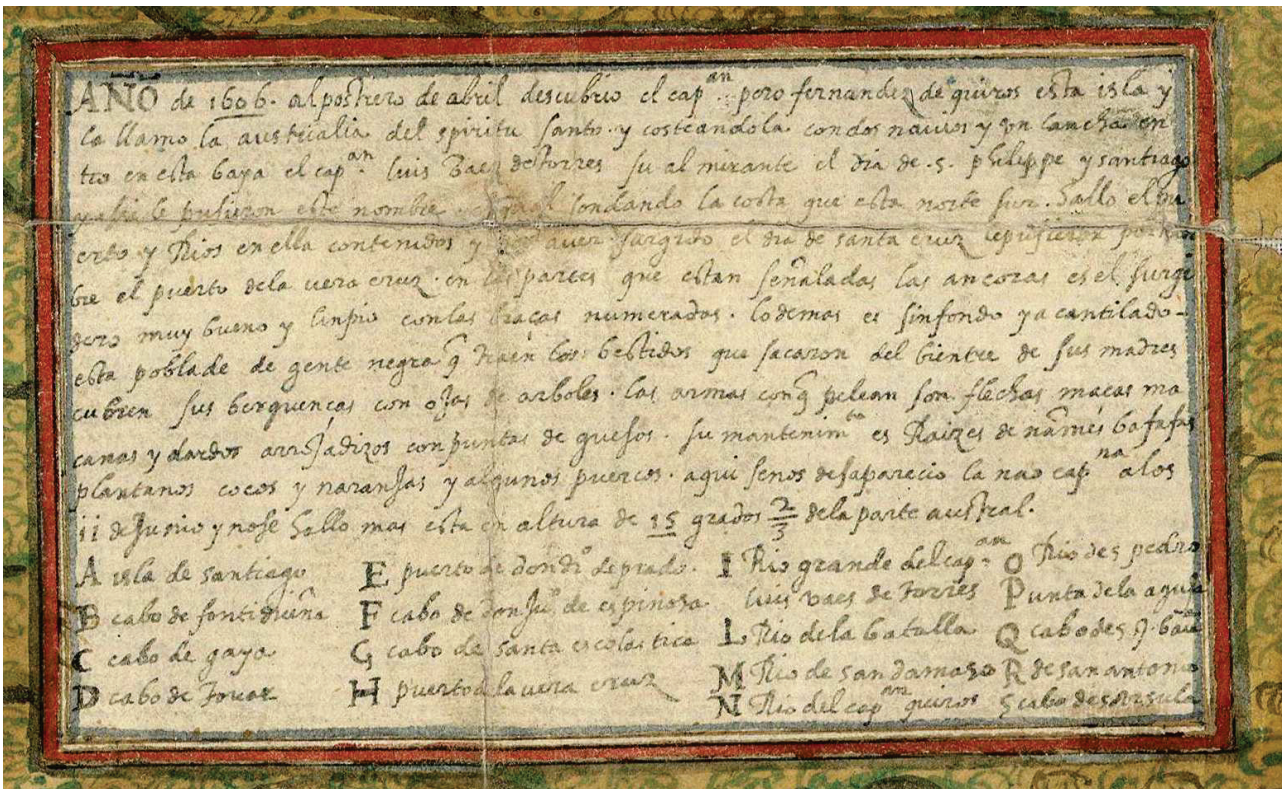 AÑO de 1606. al postrero de abril descubrio el cap.an pero fernandez de quiros esta isla y
la llamo la austrialia del spiritu santo. y costeandola con dos navios y vn lancha en
tro en esta baya el cap.an luis Baez de torres su almirante el dia de .s. phelippe y santiago
y assi le pusieron este nombre sondando la costa que esta norte sur. hallo el pu
erto y Rios en ella contenidos y por aver surgido el dia de santa cruz le pusieron por nom
bre el puerto dela vera cruz. en las partes que estan señaladas las ancoras es el surgi
dero muy bueno y linpio con las braças numeradas. lo demas es sinfondo y acantilado-
esta poblade de gente negra q̄ traen los bestidos que sacaron del bientre de sus madres
cubren sus berguencas con ojas de arboles. las armas con q̄ pelean son flechas macas ma
canas y dardos arrojadizos con puntas de guesos. su mantenimto es Raizes de ñames batatas
plantanos cocos y naranjas y algunos puercos. aqui senos desaparecio la nao capna a los
11 de Junio y nose hallo mas esta en altura de 15 grados 2/3 dela parte austral.
A isla de santiago
B cabo de fontidueña
C cabo de gaya
D cabo de Tovar
E puerto de don do deprado.
F cabo de don Juo de espinosa
G cabo de santa escolastica
H puerto de la vera cruz
I Rio grande del cap.an
luis vaes de torres
L Rio dela batalla
M Rio de san damaso
N Rio del capan quiros
O Rio de s pedro
P Punta dela aguia
Q cabo de s
R de san antonio
S cabo de s ursula